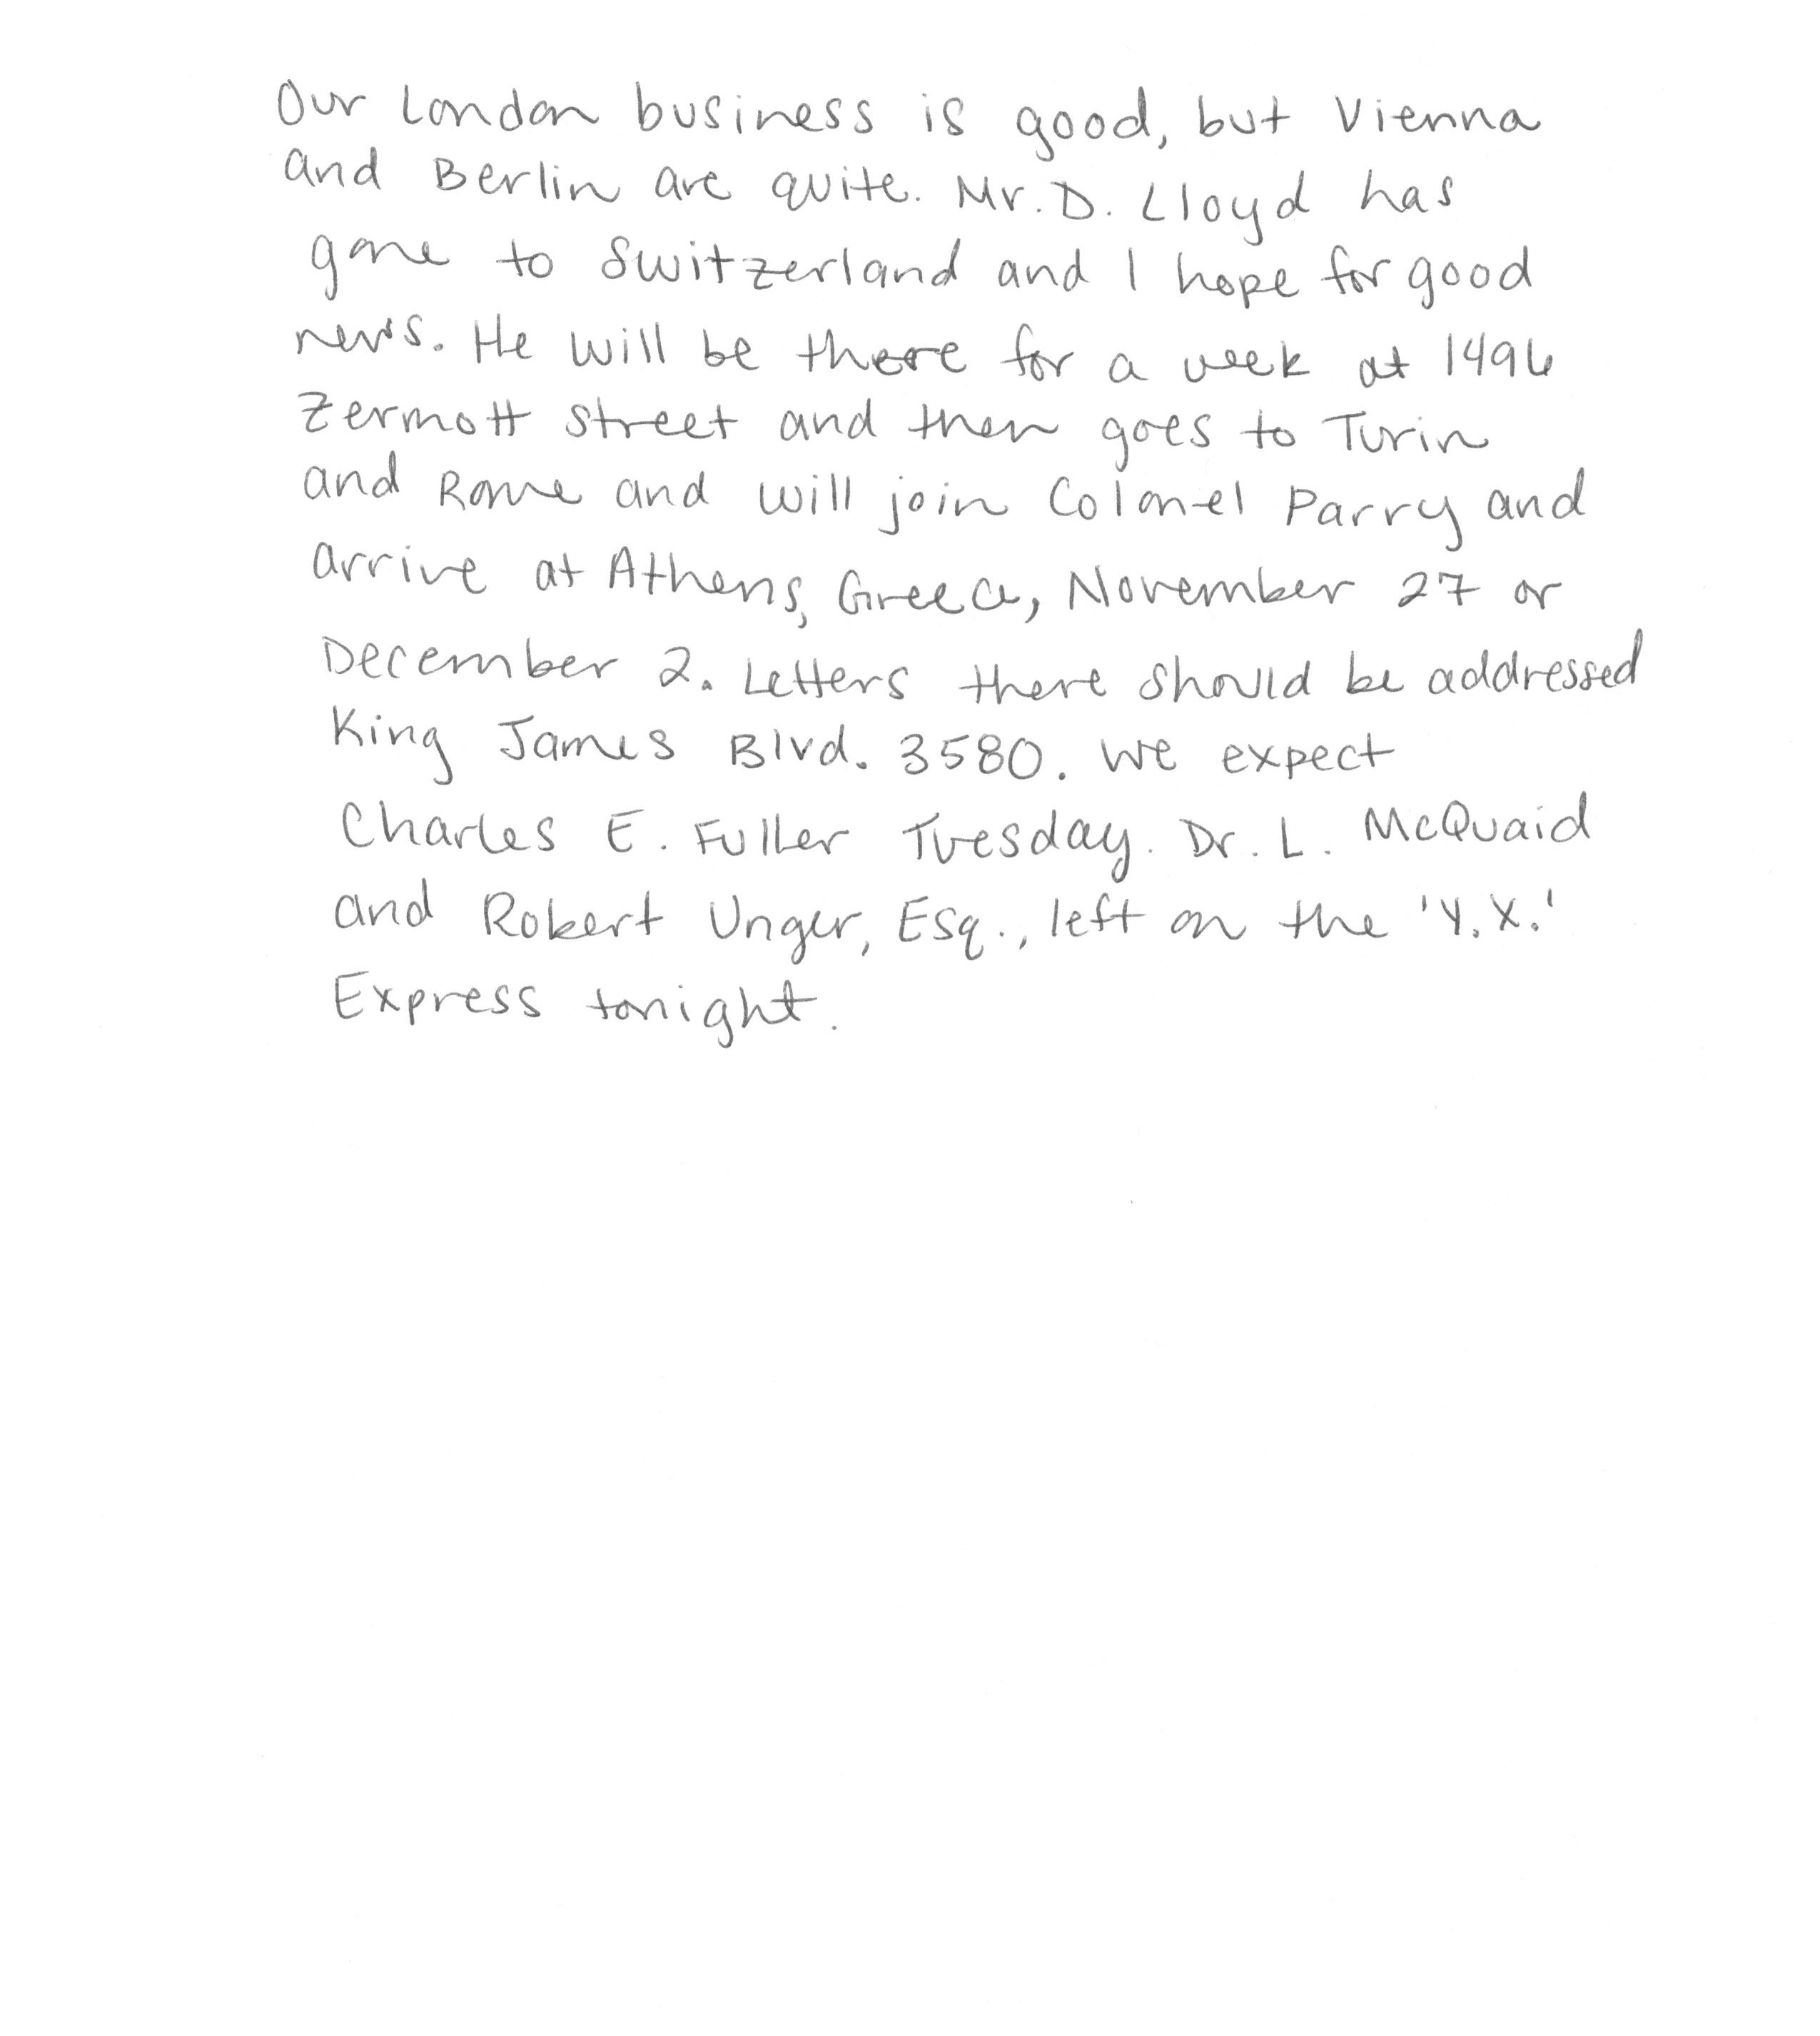 Our London business is good, but Vienna
and Berlin are quite. Mr. D. Lloyd has
gone to Switzerland and I hope for good
news. He will be there for a week at 1496
Zermott Street and then goes to Turin
and Rome and will join Colonel Parry and
arrive at Athens, Greece, November 27 or
December 2. Letters there should be addressed
King James Blvd. 3580. We expect
Charles E. Fuller Tuesday. Dr. L. McQuaid
and Robert Unger, Esq., left on the 'Y.X.'
Express tonight.